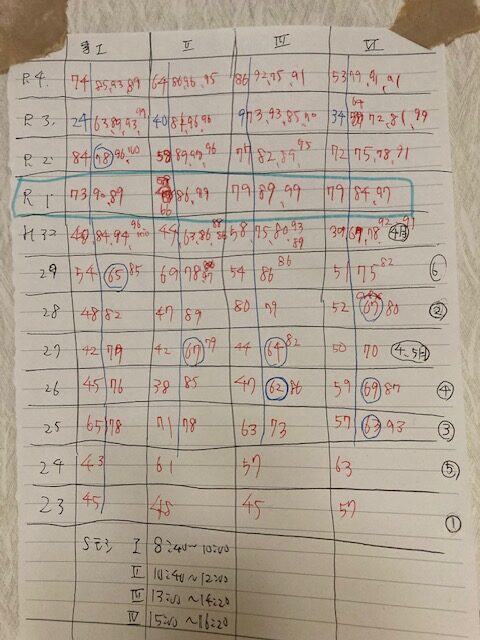 I II III VI
R4. 74 85,93,89 64 80,96,95 86 92,95,91 53 79,91,91
R3. 24 63,89,93,99 40 82,96,96 9 73,93,85,90 34 64 72,81,99
R2 84 78 96,100 58 89,99,96 77 82,89,95 72 75,78,91
R1 73 90,89 66 86,99 79 89,99 79 84,97
H30 40,84,94,96 44 63,86,88 58,75,80,93 89 39 69,78,92 4月
29 54 65 85 69 78 87 54 86 86 51 75 82 ⑥
28 48 82 47 89 80 79 52 67 80 ②
27 42 79 42 67 79 44 64 82 50 70 4,5月
26 45 76 38 85 47 62 86 59 69 87 ④
25 65 78 71 78 63 73 57 63 93 ③
24 43 61 57 63 ⑤
23 45 48 45 57 ①
I 8:40~10:00
II 10:40~12:00
13:00~14:20
IV 15:00~16:20